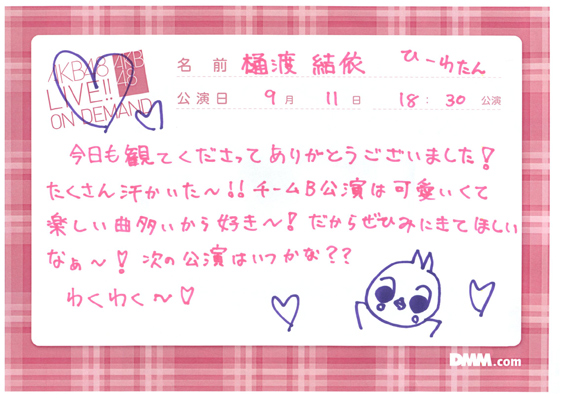 AKB48
LIVE!!
ON DEMAND
AKB
48
名 前 樋渡 結依 ひーわたん
公演日 9月 11日 18:30 公演
今日も観てくださってありがとうございました!
たくさん汗かいた〜!!チームB公演は可愛いくて
楽しい曲多いから好き〜!だからぜひみにきてほしい
なぁ〜!次の公演はいつかな??
わくわく〜♡
DMM.com